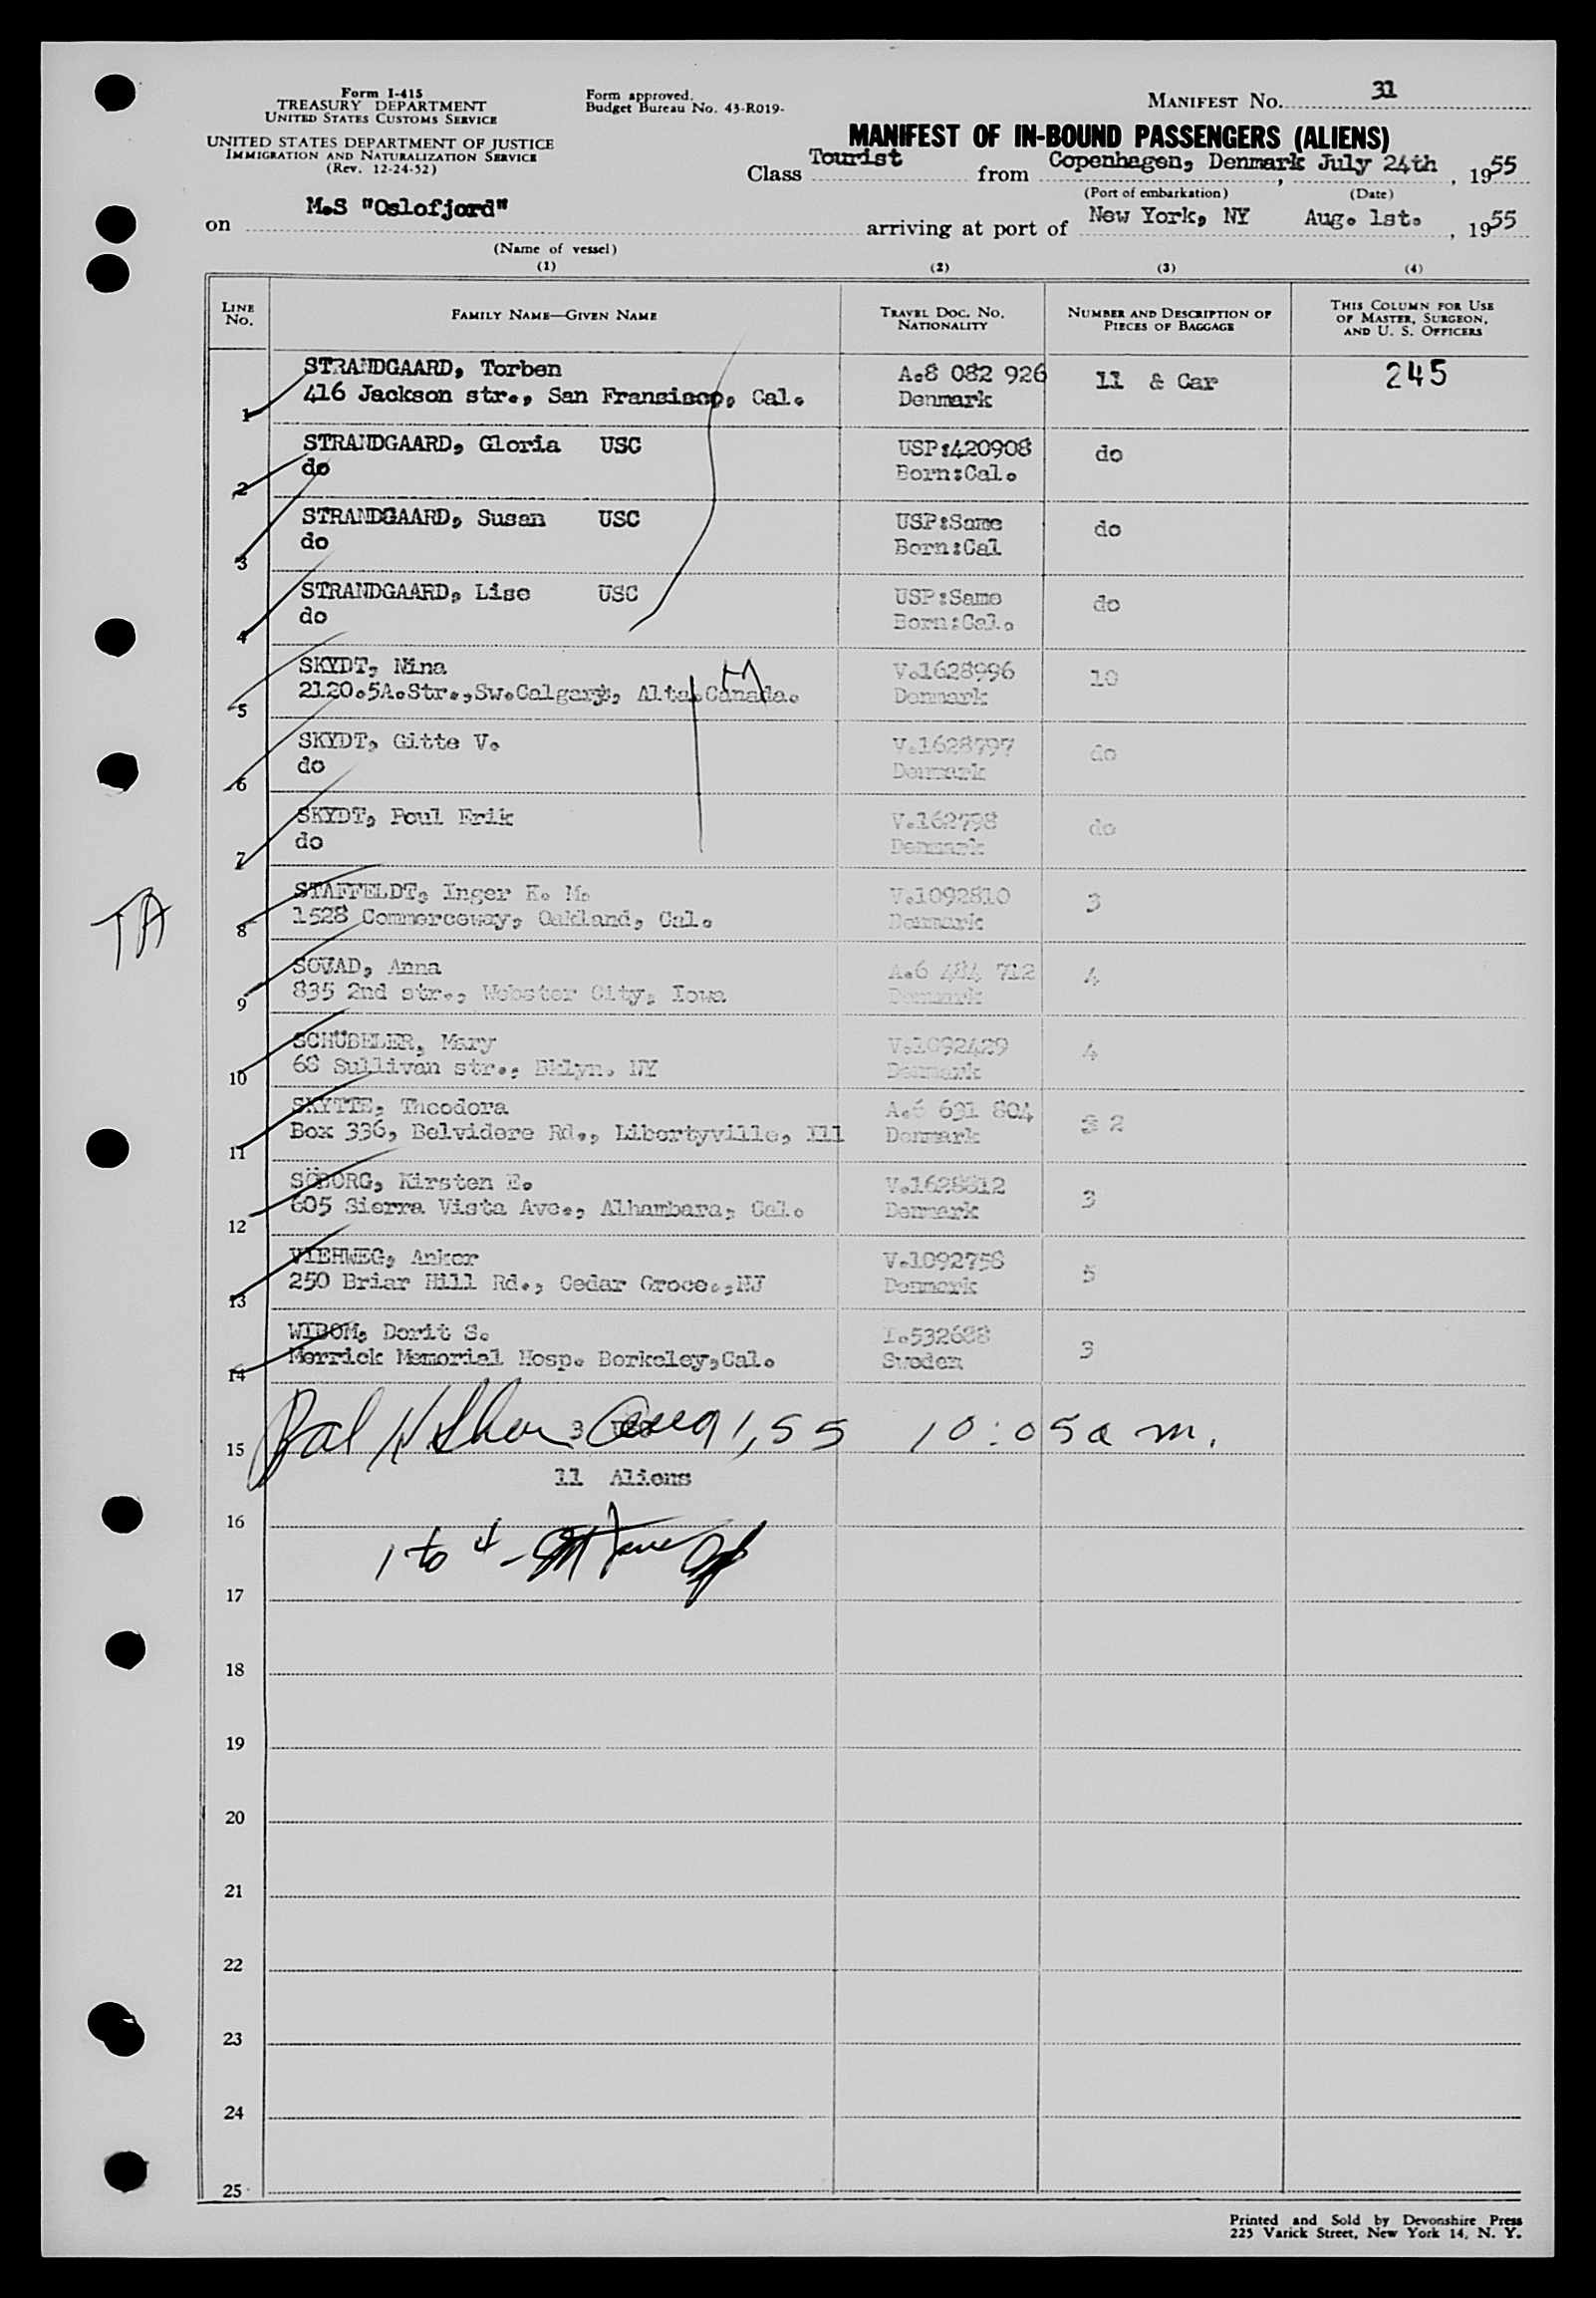 Form I-415
TREASURY DEPARTMENT
UNITED STATES CUSTOMS SERVICE
UNITED STATES DEPARTMENT OF JUSTICE
IMMIGRATION AND NATURALIZATION SERVICE
(Rev. 12-24-52)
Form approved.
Budget Bureau No. 43-R019-
MANIFEST NO. 31
MANIFEST OF IN-BOUND PASSENGERS (ALIENS)
Class Tourist from Copenhagen, Denmark July 24th, 1955
(Port of embarkation) (Date)
on M.S "Oslofjord" arriving at port of New York, NY Aug. 1st. , 1955
(Name of vessel)
(1) (2) (3) (4)
LINE No. FAMILY NAME—GIVEN NAME TRAVEL DOC. NO. NATIONALITY NUMBER AND DESCRIPTION OF PIECES OF BAGGAGE THIS COLUMN FOR USE OF MASTER, SURGEON, AND U. S. OFFICERS
STRANDGAARD, Torben A.8 082 926 11 & Car 245
1 416 Jackson str., San Fransisco, Cal. Denmark
STRANDGAARD, Gloria USC USP:420908 do
2 do Born:Cal.
STRANDGAARD, Susan USC USP:Same do
3 do Born:Cal
STRANDGAARD, Lise USC USP:Same do
4 do Born:Cal.
SKYDT, Nina V.1628996 10
5 2120.5A.Str.,Sw.Calgary, Alta.Canada. Denmark
SKYDT, Gitte V. V.1628797 do
6 do Denmark
SKYDT, Poul Erik V.162798 do
7 do Denmark
STAFFELDT, Inger K. M. V.1092810 3
8 1528 Commerceway, Oakland, Cal. Denmark
SOVAD, Anna A.6 484 712 4
9 835 2nd str., Webster City, Iowa Denmark
SCHÜBELER, Mary V.1092429 4
10 68 Sullivan str., Bklyn. NY Denmark
SKYTTE, Theodora A.6 691 804 2
11 Box 336, Belvidere Rd., Libertyville, Ill Denmark
SÖBORG, Kirsten E. V.1628812 3
12 605 Sierra Vista Ave., Alhambra, Cal. Denmark
VIEHWEG, Anker V.1092758 5
13 250 Briar Hill Rd., Cedar Groce.,NJ Denmark
WIBOM, Dorit S. I.532688 3
14 Merrick Memorial Hosp. Berkeley,Cal. Sweden
TA
15 3 Aug 1, 55 10:05 a m.
11 Aliens
16
1 to 4 -
17
18
19
20
21
22
23
24
25
Printed and Sold by Devonshire Press
225 Varick Street, New York 14, N. Y.